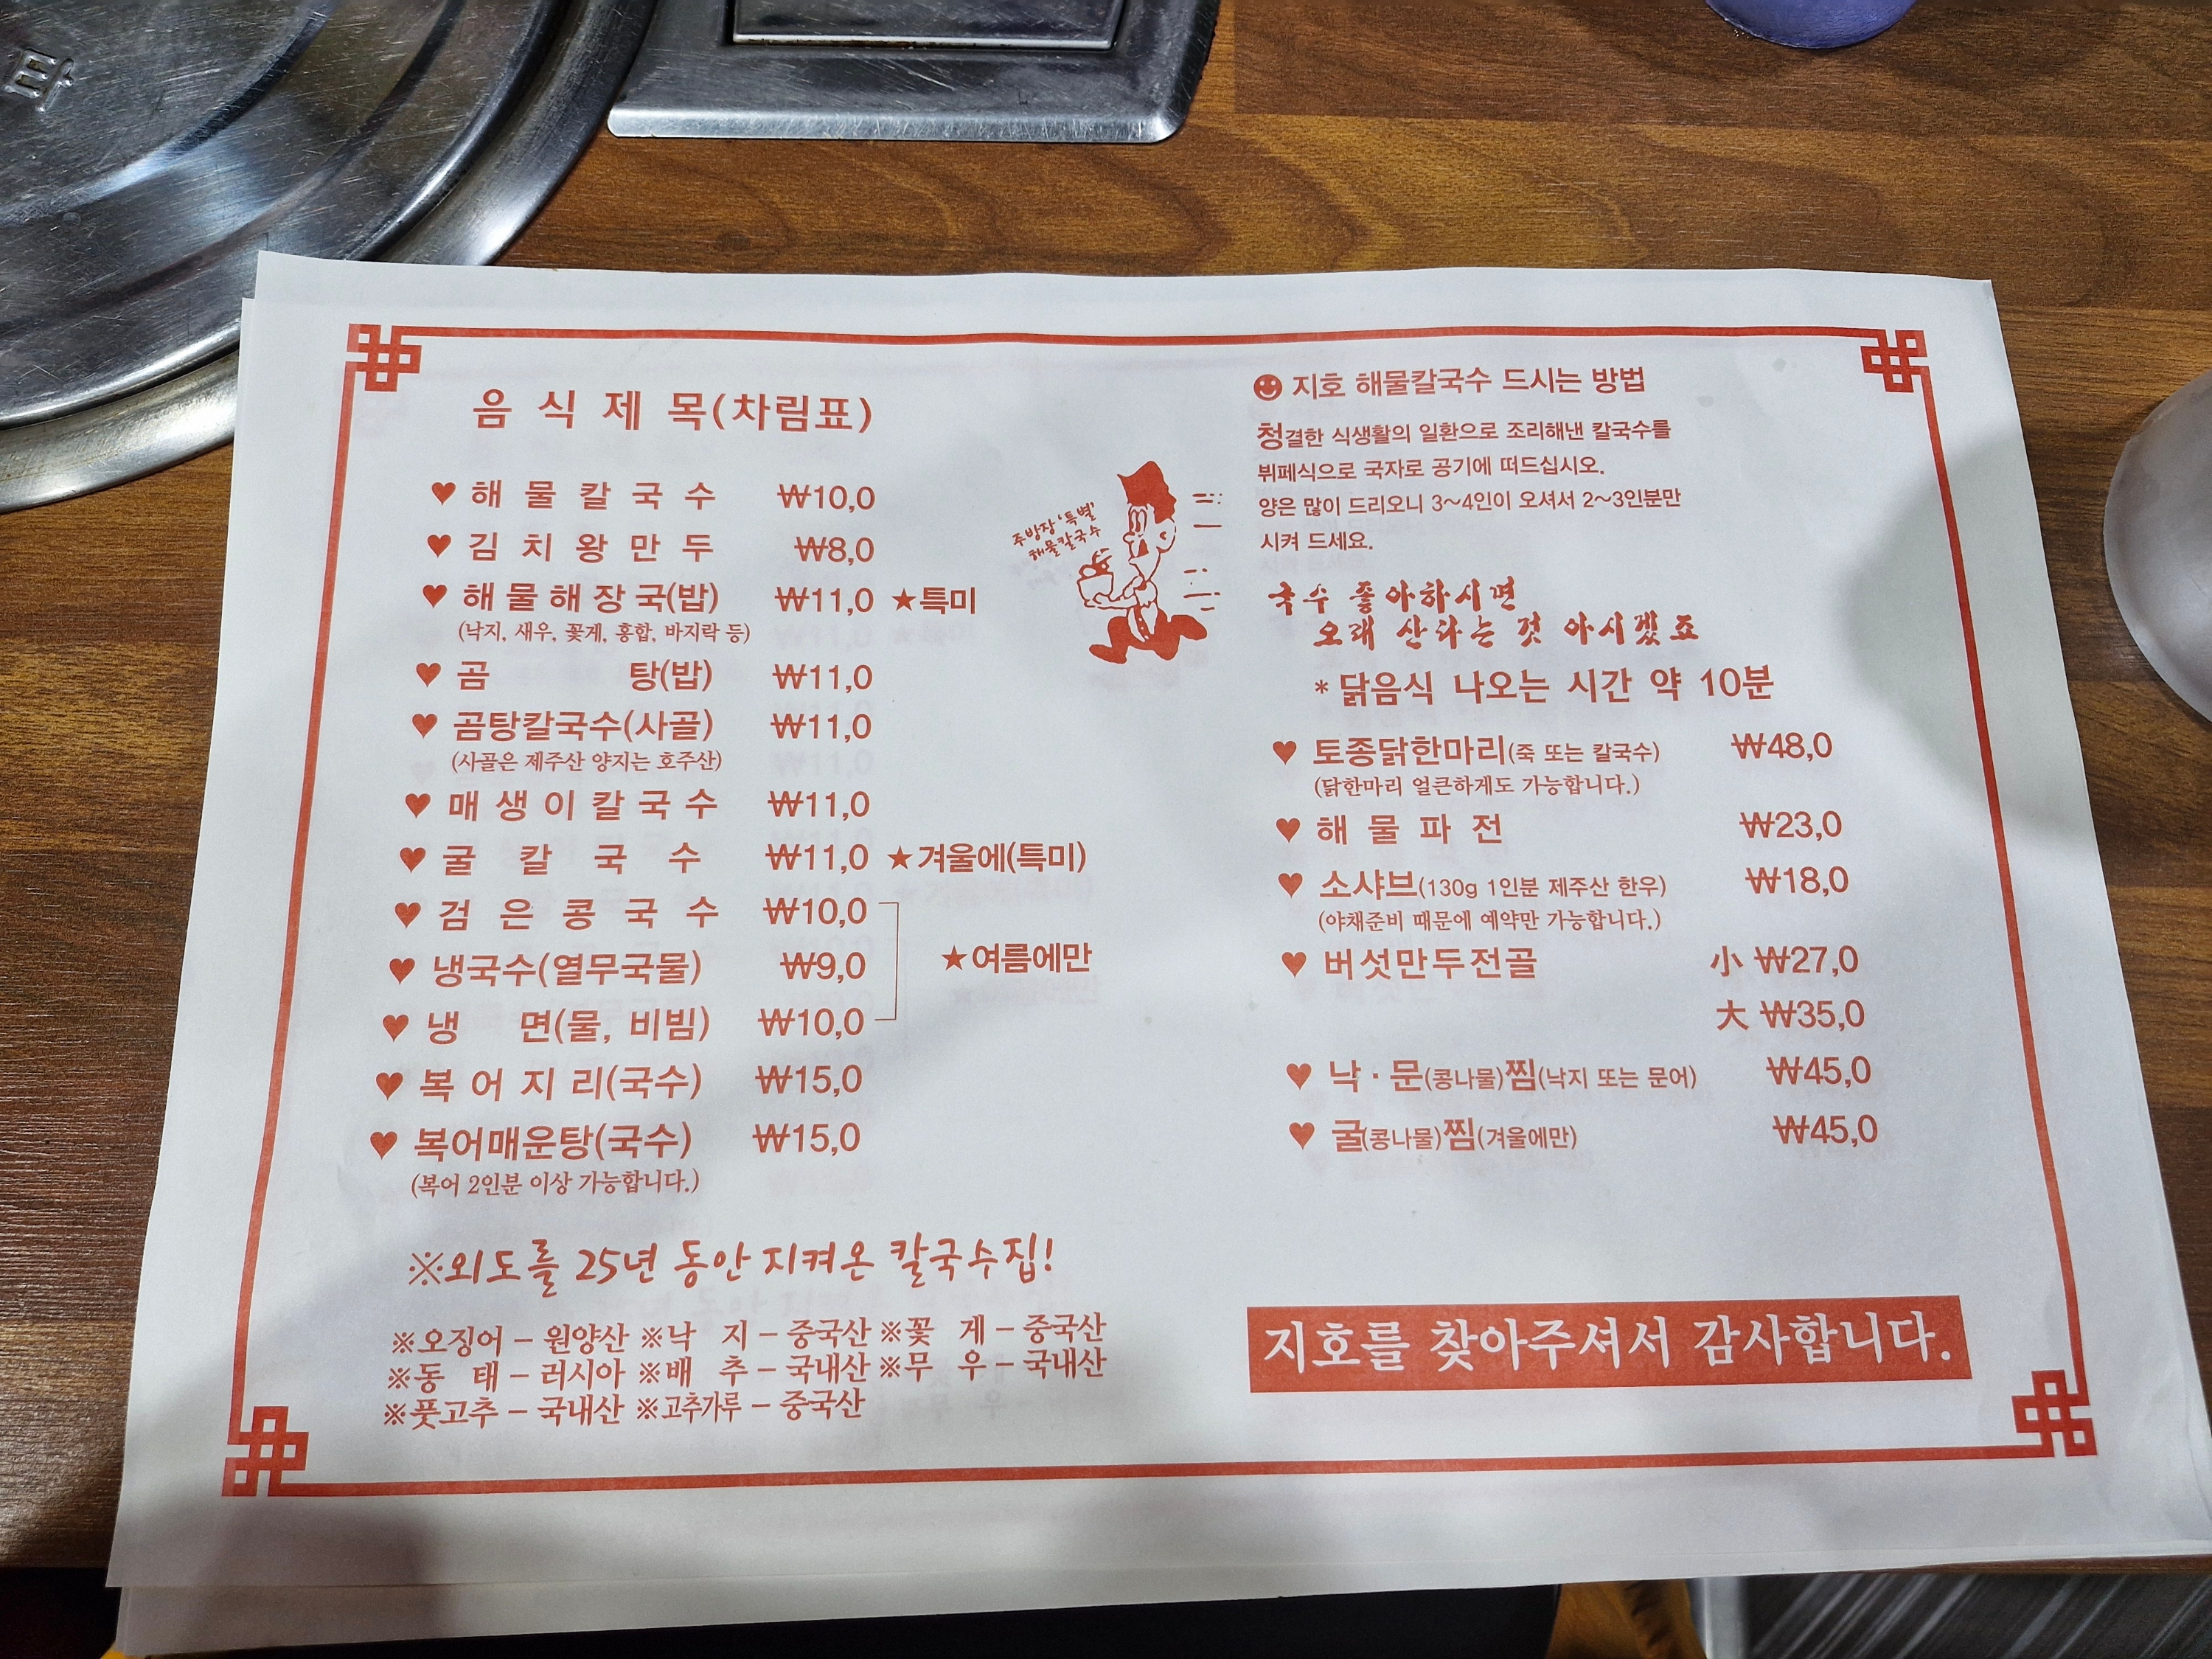 음 식 제 목(차림표)
♥ 해 물 칼 국 수 ₩10,0
♥ 김 치 왕 만 두 ₩8,0
♥ 해 물 해 장 국(밥) ₩11,0 ★특미
(낙지, 새우, 꽃게, 홍합, 바지락 등)
♥ 곰 탕(밥) ₩11,0
♥ 곰탕칼국수(사골) ₩11,0
(사골은 제주산 양지는 호주산)
♥ 매 생 이 칼 국 수 ₩11,0
♥ 굴 칼 국 수 ₩11,0 ★겨울에(특미)
♥ 검 은 콩 국 수 ₩10,0
♥ 냉국수(열무국물) ₩9,0
★여름에만
♥ 냉 면(물, 비빔) ₩10,0
♥ 복 어 지 리(국수) ₩15,0
♥ 복어매운탕(국수) ₩15,0
(복어 2인분 이상 가능합니다.)
※외도를 25년 동안 지켜온 칼국수집!
※오징어 – 원양산 ※낙 지 – 중국산 ※꽃 게 – 중국산
※동 태 – 러시아 ※배 추 – 국내산 ※무 우 – 국내산
※풋고추 – 국내산 ※고추가루 – 중국산
주방장 '특별'
해물칼국수
지호 해물칼국수 드시는 방법
청결한 식생활의 일환으로 조리해낸 칼국수를
뷔페식으로 국자로 공기에 떠드십시오.
양은 많이 드리오니 3～4인이 오셔서 2～3인분만
시켜 드세요.
국수 좋아하시면
오래 산다는 것 아시겠죠
*닭음식 나오는 시간 약 10분
♥ 토종닭한마리(죽 또는 칼국수) ₩48,0
(닭한마리 얼큰하게도 가능합니다.)
♥ 해 물 파 전 ₩23,0
♥ 소샤브(130g 1인분 제주산 한우) ₩18,0
(야채준비 때문에 예약만 가능합니다.)
♥ 버섯만두전골 小 ₩27,0
大 ₩35,0
♥ 낙·문(콩나물)찜(낙지 또는 문어) ₩45,0
♥ 굴(콩나물)찜(겨울에만) ₩45,0
지호를 찾아주셔서 감사합니다.